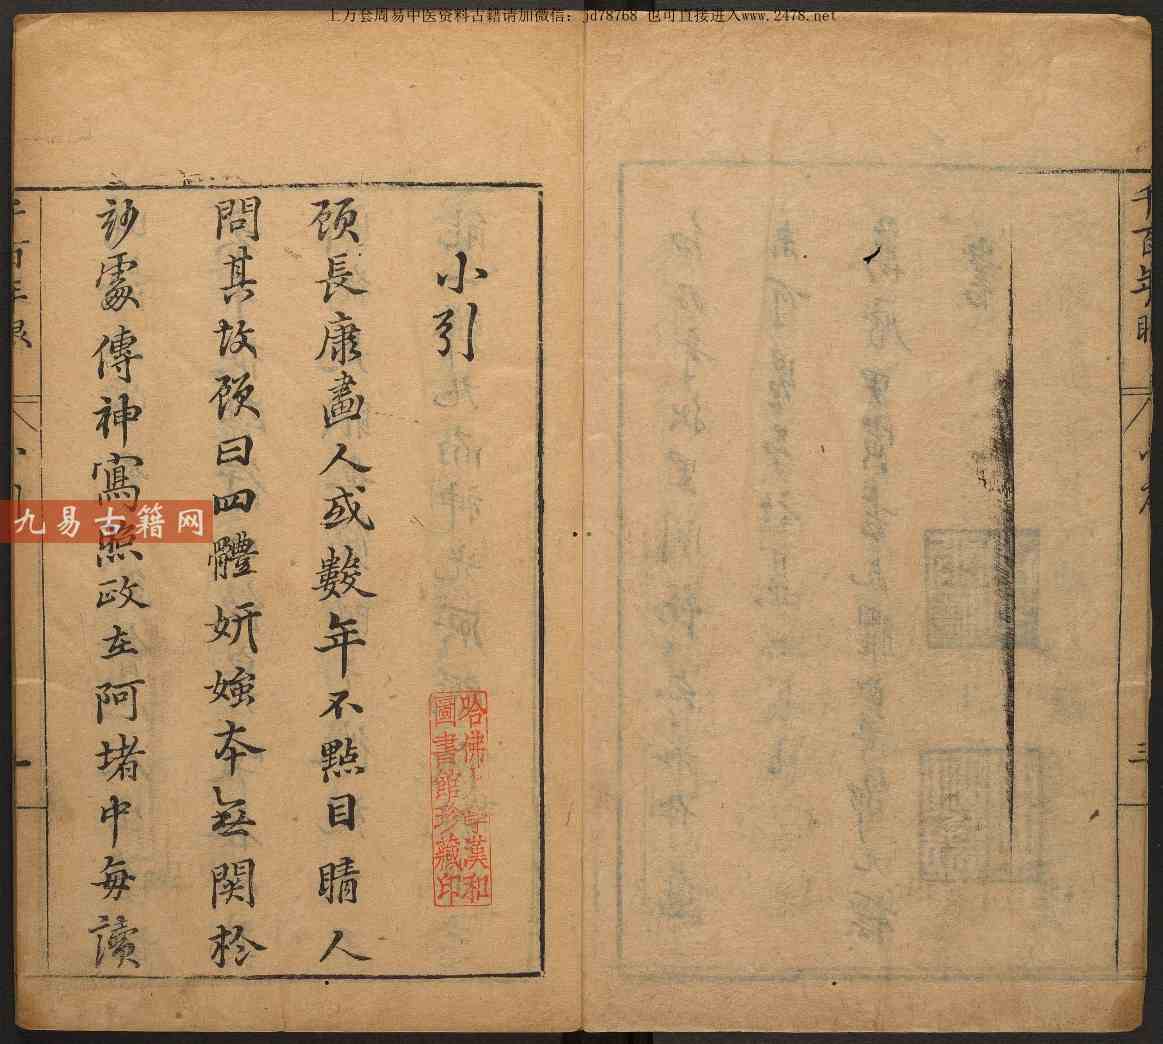 上万套周易中医资料古籍请加微信：jd78768 也可直接进入www.2478.net
千百年眼
三
小引
顧長康畫人或數年不點目睛人
問其故顧曰四體妍媸本無関於
妙處傳神寫照政在阿堵中每讀
哈佛大學漢和
圖書館珍藏印
千百年眼
小引
一
九易古籍网